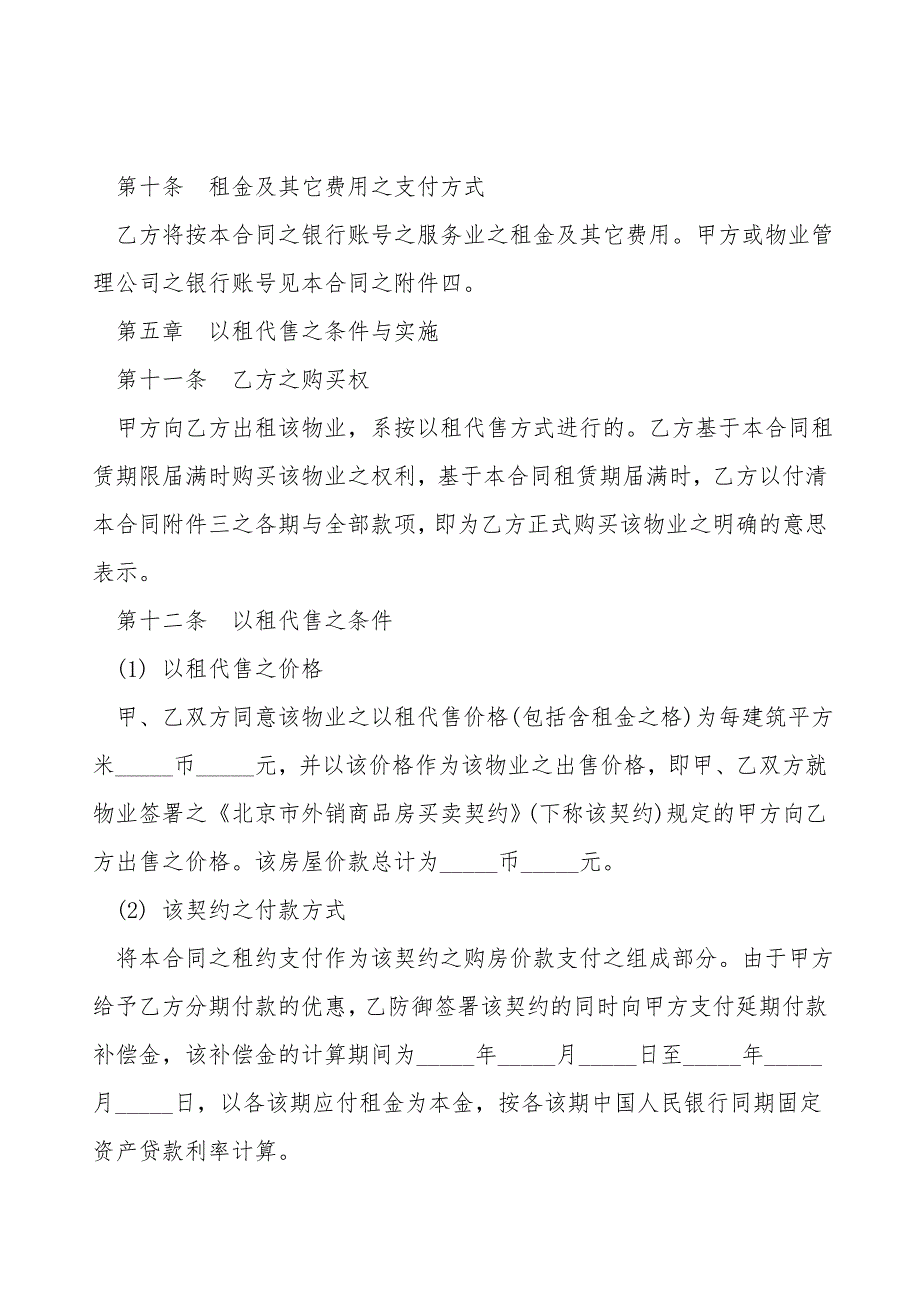 第十条　租金及其它费用之支付方式
乙方将按本合同之银行账号之服务业之租金及其它费用。甲方或物业管
理公司之银行账号见本合同之附件四。
第五章　以租代售之条件与实施
第十一条　乙方之购买权
甲方向乙方出租该物业，系按以租代售方式进行的。乙方基于本合同租
赁期限届满时购买该物业之权利，基于本合同租赁期届满时，乙方以付清
本合同附件三之各期与全部款项，即为乙方正式购买该物业之明确的意思
表示。
第十二条　以租代售之条件
(1) 以租代售之价格
甲、乙双方同意该物业之以租代售价格(包括含租金之格)为每建筑平方
米_____币_____元，并以该价格作为该物业之出售价格，即甲、乙双方就
物业签署之《北京市外销商品房买卖契约》(下称该契约)规定的甲方向乙
方出售之价格。该房屋价款总计为_____币_____元。
(2) 该契约之付款方式
将本合同之租约支付作为该契约之购房价款支付之组成部分。由于甲方
给予乙方分期付款的优惠，乙防御签署该契约的同时向甲方支付延期付款
补偿金，该补偿金的计算期间为_____年_____月_____日至_____年_____
月_____日，以各该期应付租金为本金，按各该期中国人民银行同期固定
资产贷款利率计算。